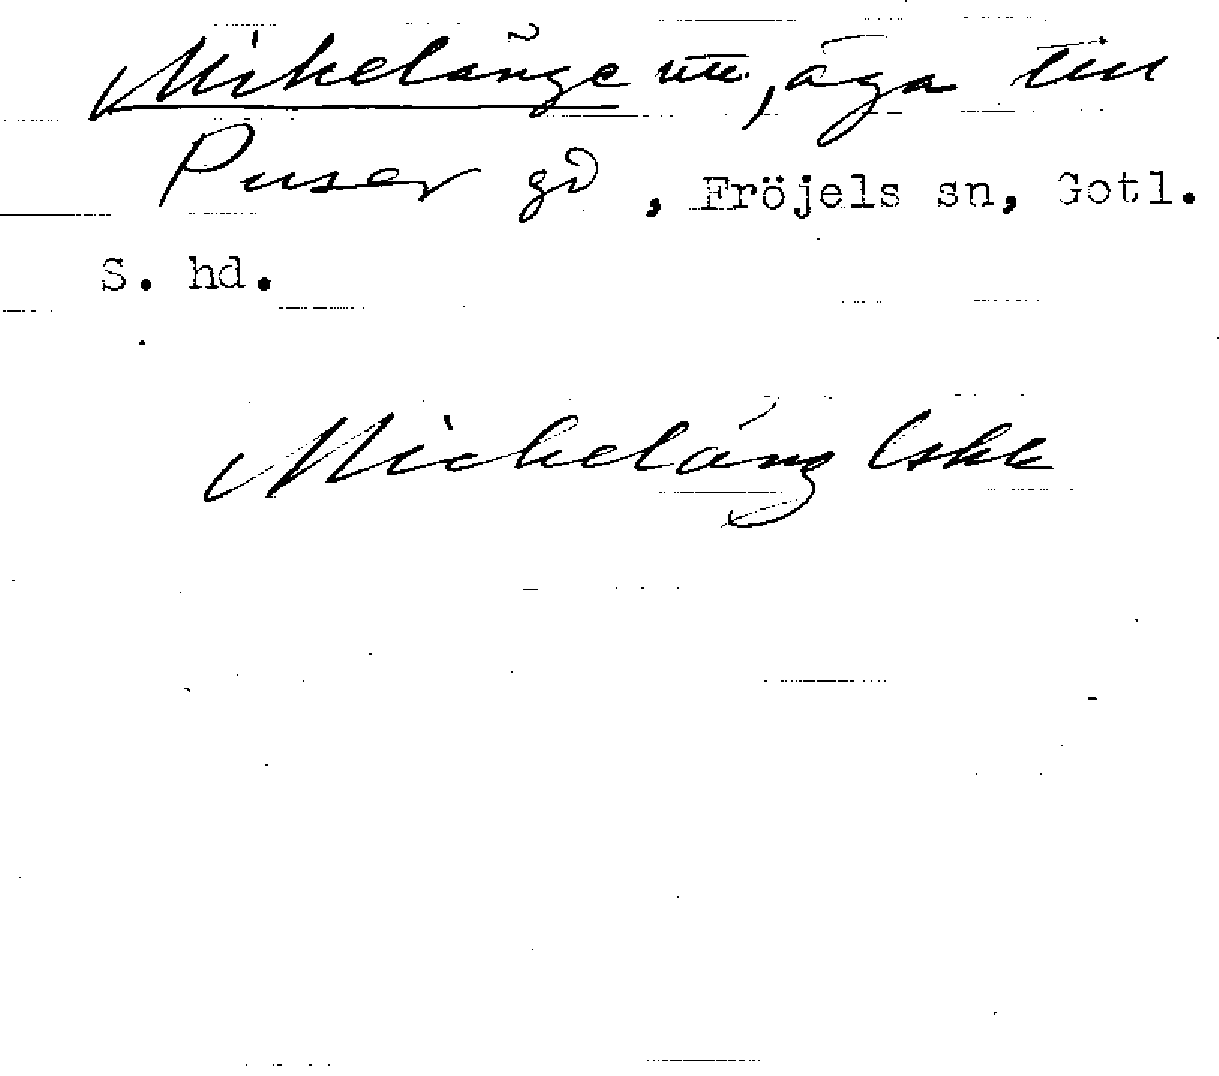 Mikelänge, äga till
Puser gd, Fröjels sn, Gotl.
S. hd.
Micheläng Lskk